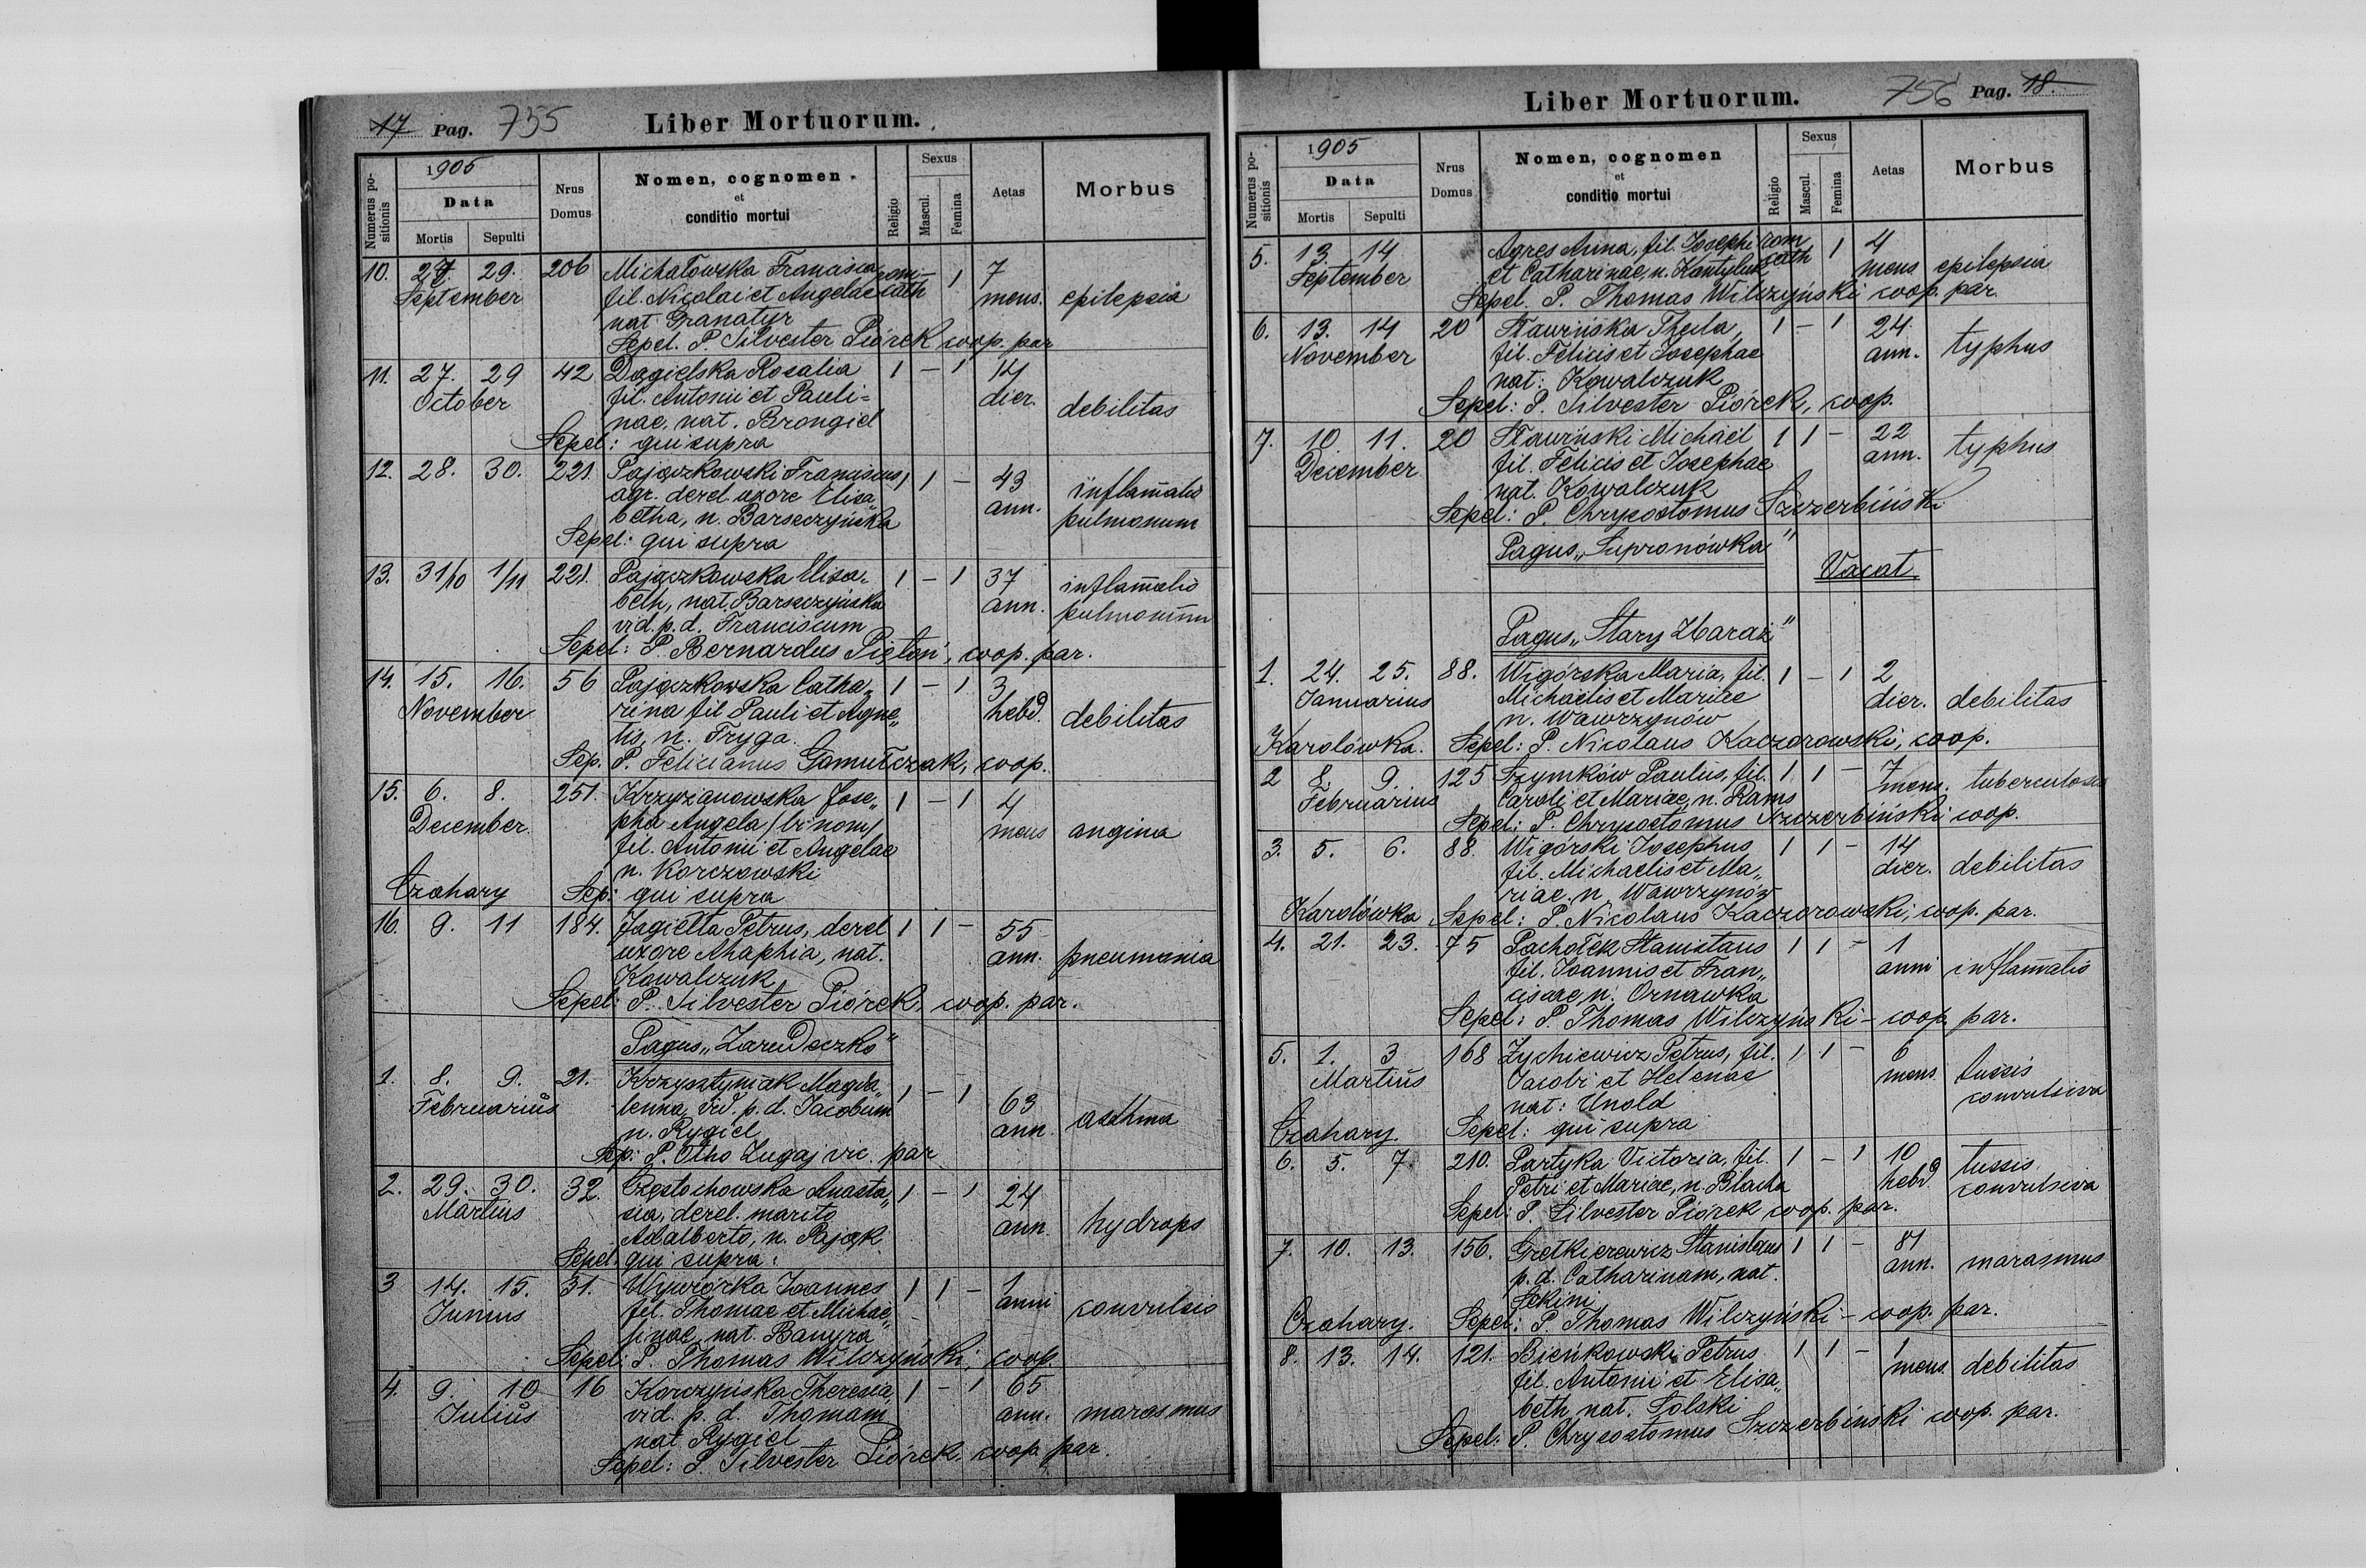 17 Pag. 755 Liber Mortuorum.
Numerus positionis 1905 Data Mortis Sepulti Nrus Domus Nomen, cognomen et conditio mortui Religio Sexus Mascul. Femina Aetas Morbus
10. 27. 29. 206 Michałowska Francisca rom- 1 7
September fil. Nicolai et Angelae cath mens. epilepsia
nat Granatyr
Sepel. P. Silvester Piórek coop. par
11. 27. 29 42 Dągielska Rosalia 1 – 1 14
October fil. Antonii et Pauli= dier. debilitas
nae, nat. Brongiel
Sepel: qui supra
12. 28. 30. 221. Pajączkowski Franciscus 1 1 – 43 inflam̄atio
agr. derel uxore Elisa„ ann. pulmonum
betha, n. Barszczyńska
Sepel: qui supra
13. 31/10 1/11 221. Pajączkowska Elisa„ 1 – 1 37 inflam̄atio
beth, nat. Barszczyńska ann. pulmonum
vid. p. d. Franciscum
Sepel: P. Bernardus Piętoń, coop. par.
14. 15. 16. 56 Pajączkowska Catha„ 1 – 1 3
November rina fil Pauli et Agne„ hebd. debilitas
tis, n. Fryga.
Sep. P. Felicianus Gamułczak, coop.
15. 6. 8. 251. Krzyżanowska Jose„ 1 – 1 4
December pha Angela (binom) mens angina
fil. Antonii et Angelae
n. Korczowski
Czahary Sep: qui supra
16. 9. 11 184. Jagiełła Petrus, derel 1 1 – 55
uxore Ahaphia, nat. ann. pneumonia
Kowalczuk
Sepel: P. Silvester Piórek, coop. par.
Pagus „Zarudeczko"
1. 8. 9. 21. Krzysztyniak Magda„ 1 – 1 63
Februarius lenna, vid. p. d. Jacobum ann. asthma
n. Rygiel
Sep: P. Otho Zugaj vic. par
2. 29. 30. 32. Częstochowska Anasta„ 1 – 1 24
Martius sia, derel. marito ann hydrops
Adalberto, n. Pająk
Sepel. qui supra.
3 14. 15. 31. Wywiórka Joannes 1 1 – 1
Junius fil. Thomae et Michae„ anni convulsio
linae, nat. Banyra
Sepel: P. Thomas Wilczyński, coop.
4. 9. 10 16 Korczyńska Theresia, 1 – 1 65
Julius vid. p. d. Thomam ann. marasmus
nat Rygiel
Sepel: P. Silvester Piórek, coop. par.
Liber Mortuorum. 756 Pag. 18.
Numerus positionis 1905 Data Mortis Sepulti Nrus Domus Nomen, cognomen et conditio mortui Religio Sexus Mascul. Femina Aetas Morbus
5. 13 14 Agres Anna, fil. Josephi rom 1 4
September et Catharinae, n. Kantyluk cath mens epilepsia
Sepel. P. Thomas Wilczyński coop. par.
6. 13. 14 20 Sławińska Thecla, 1 – 1 24.
November fil. Felicis et Josephae ann. typhus
nat: Kowalczuk
Sepel: P. Silvester Piórek, coop.
7. 10 11. 20 Sławiński Michael 1 1 – 22
December fil. Felicis et Josephae ann. typhus
nat. Kowalczuk
Sepel: P. Chrysostomus Szczerbiński
Pagus „Supronówka"
Vacat.
Pagus „Stary Zbaraż"
1. 24. 25. 88. Wigórska Maria, fil. 1 – 1 2
Januarius Michaelis et Mariae dier. debilitas
n. Wawrzynów
Karolówka. Sepel: P. Nicolaus Kaczorowski, coop.
2 8. 9. 125 Szymków Paulus, fil. 1 1 – 7
Februarius Caroli et Mariae, n. Rams mens. tuberculosis
Sepel: P. Chrysostomus Szczerbiński coop.
3. 5. 6. 88. Wigórski Josephus 1 1 – 14
fil. Michaelis et Ma„ dier. debilitas
riae, n. Wawrzynów
Karolówka Sepel: P. Nicolaus Kaczorowski, coop. par.
4. 21. 23. 75 Pachołek Stanislaus 1 1 – 1
fil. Joannis et Fran„ anni inflam̄atio
ciscae, n. Ornawka
Sepel: P. Thomas Wilczyński – coop. par.
5. 1. 3 168 Zychiewicz Petrus, fil. 1 1 – 6 tussis
Martius Jacobi et Helenae mens. convulsiva
nat: Unold
Czahary. Sepel: qui supra
6. 5. 7. 210. Partyka Victoria, fil. 1 – 1 10 tussis
Petri et Mariae, n. Blacha hebd convulsiva
Sepel: P. Silvester Piórek coop. par.
7. 10. 13. 156. Gretkierewicz Stanislaus 1 1 – 81
p. d. Catharinam, nat. ann. marasmus
Czahary. Sepel: P. Thomas Wilczyński – coop. par.
8. 13. 14. 121. Bieńkowski Petrus 1 1 – 1
fil. Antonii et Elisa„ mens. debilitas
beth, nat. Solski
Sepel: P. Chrysostomus Szczerbiński coop. par.